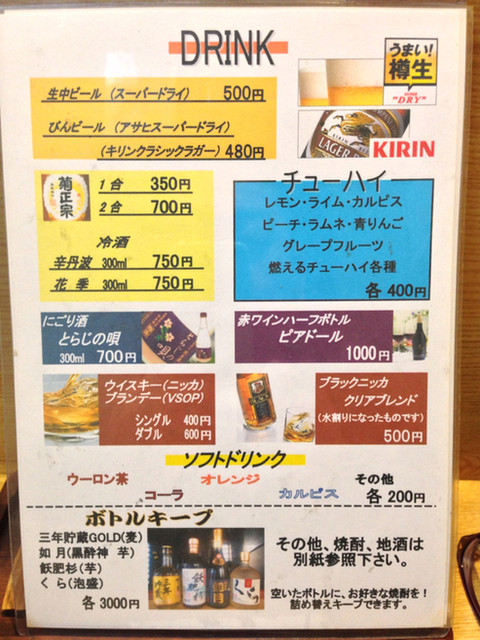 DRINK
うまい!
樽生
"DRY"
生中ビール (スーパードライ) 500円
びんビール (アサヒスーパードライ)
(キリンクラシックラガー) 480円
LAGER
KIRIN
菊正宗
1合 350円
2合 700円
冷酒
辛丹波 300ml 750円
花季 300ml 750円
チューハイ
レモン・ライム・カルピス
ピーチ・ラムネ・青りんご
グレープフルーツ
燃えるチューハイ各種
各400円
にごり酒
とらじの唄
300ml 700円
赤ワインハーフボトル
ピアドール
1000円
ウイスキー(ニッカ)
ブランデー(VSOP)
シングル 400円
ダブル 600円
ブラックニッカ
クリアブレンド
(水割りになったものです)
500円
ソフトドリンク
ウーロン茶 オレンジ その他
コーラ カルピス 各200円
ボトルキープ
三年貯蔵GOLD(麦)
如月(黒酔神 芋)
飫肥杉(芋)
くら(泡盛)
各3000円
その他、焼酎、地酒は
別紙参照下さい。
空いたボトルに、お好きな焼酎を!
詰め替えキープできます。